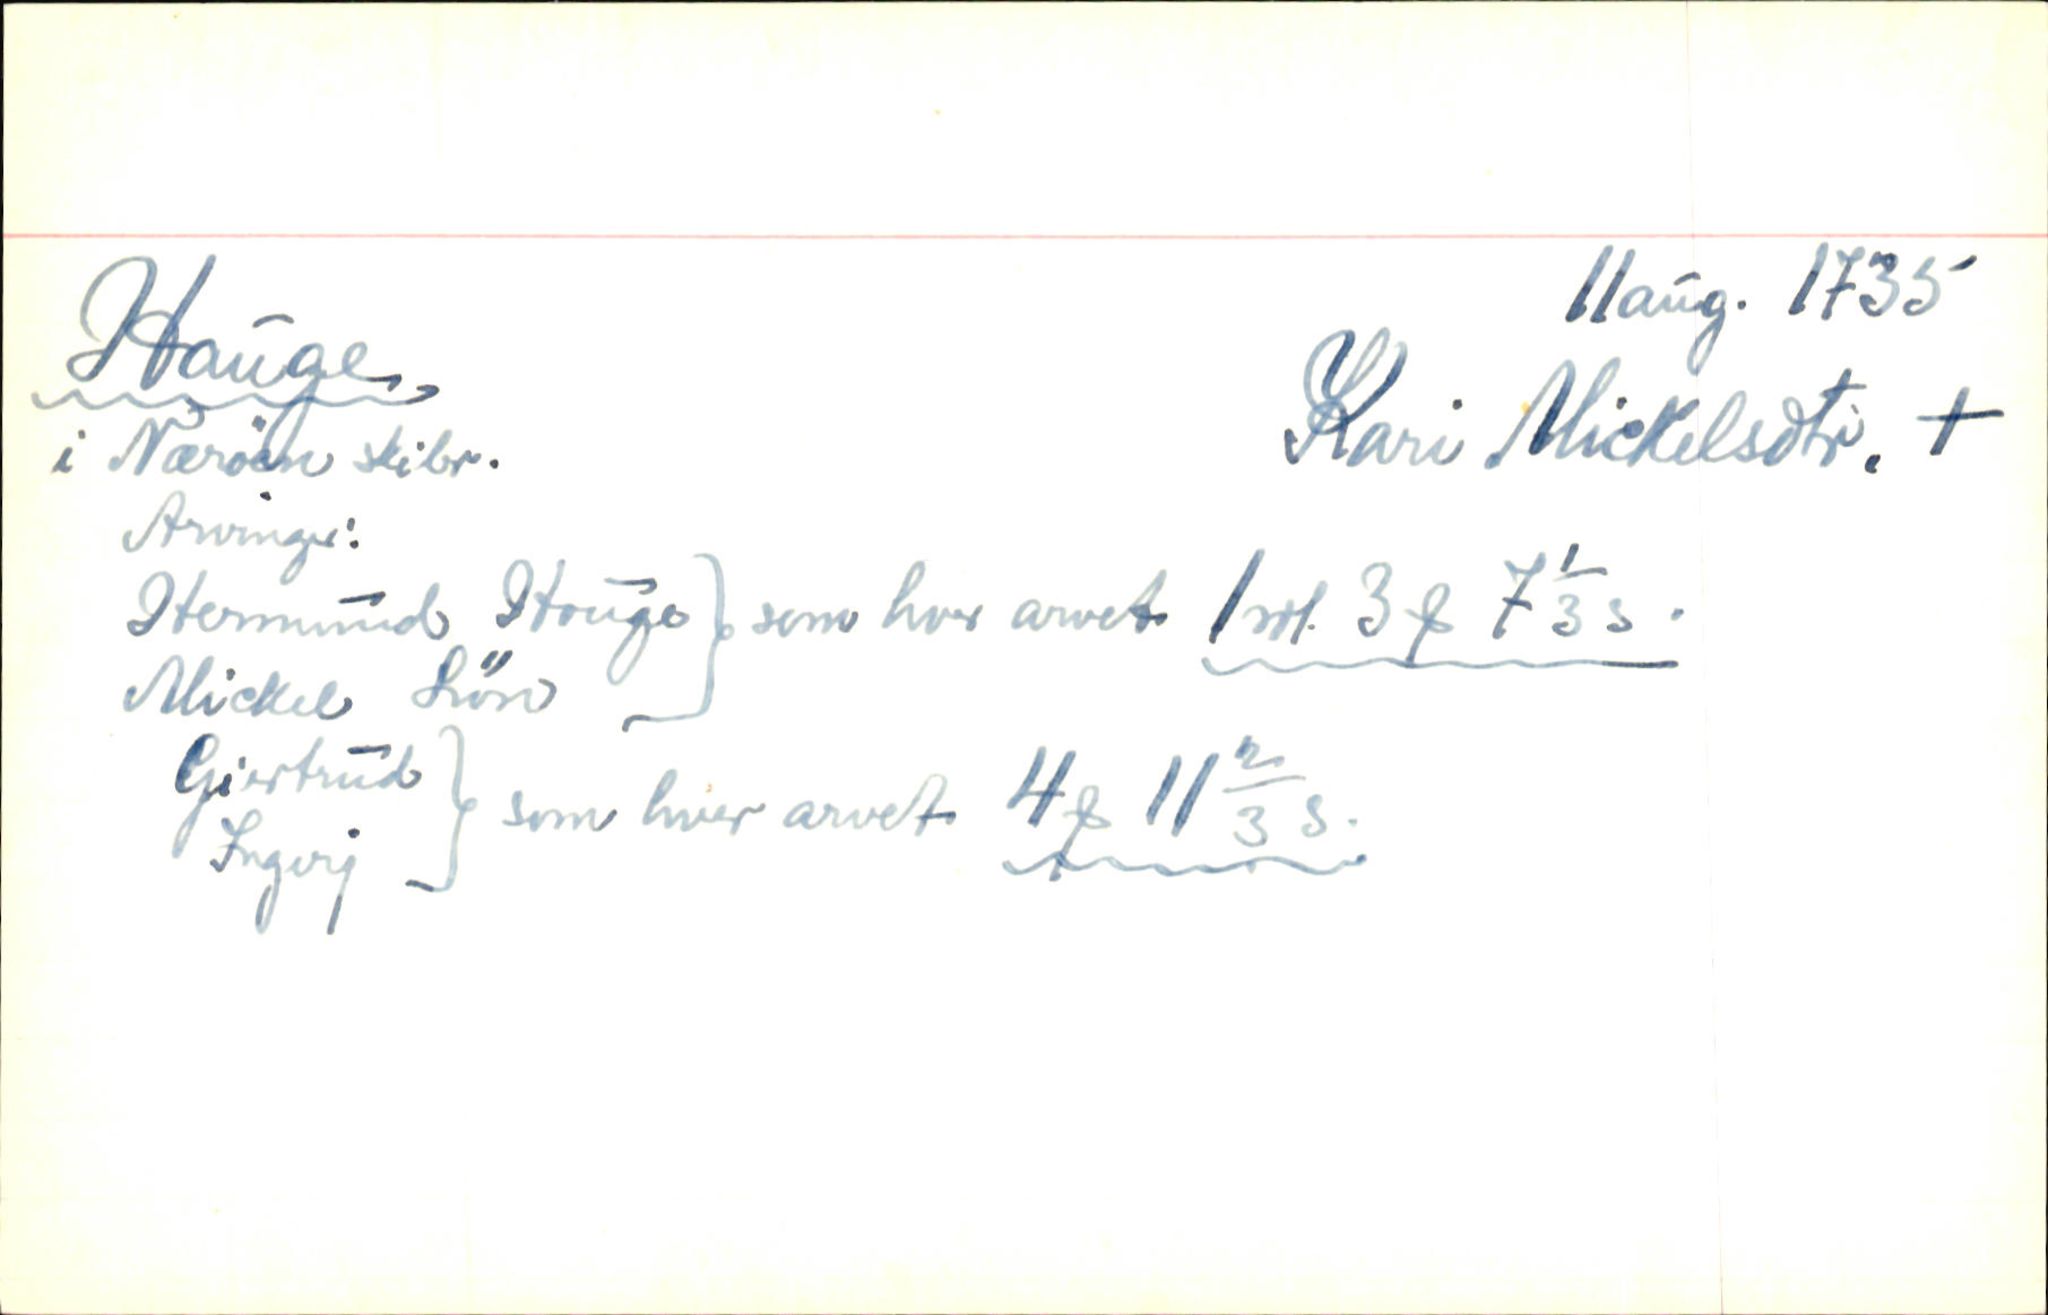 11 aug. 1735
Hauge,
Kari Mickelsdtr. +
i Næröen skibr.
Arvinger:
Hermund Houge } som hver arvet 1 rdl. 3 ƒ 7 1/3 s.
Mickel
Giertrud } som hver arvet 4 ƒ 11 2/3 s.
Ingerj